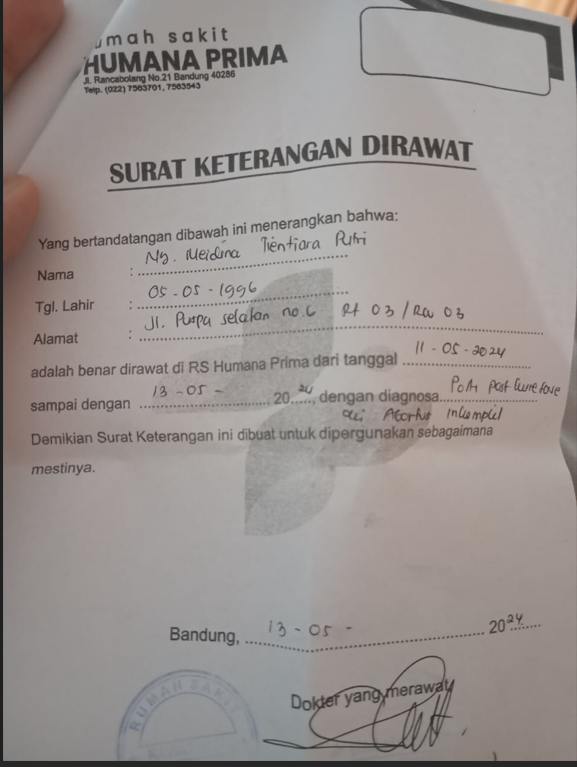 rumah sakit
HUMANA PRIMA
Jl. Rancabolang No.21 Bandung 40286
Telp. (022) 7563701, 7563543
SURAT KETERANGAN DIRAWAT
Yang bertandatangan dibawah ini menerangkan bahwa:
Nama : Ny. Meidina Tientiara Putri
Tgl. Lahir : 05-05-1996
Alamat : Jl. Puspa selatan no.6 Rt 03 / Rw 03
adalah benar dirawat di RS Humana Prima dari tanggal 11-05-2024
sampai dengan 13-05- 2024, dengan diagnosa Post Curetase
Abortus Inkomplet
Demikian Surat Keterangan ini dibuat untuk dipergunakan sebagaimana
mestinya.
Bandung, 13-05- 2024
Dokter yang merawat
RUMAH SAKIT